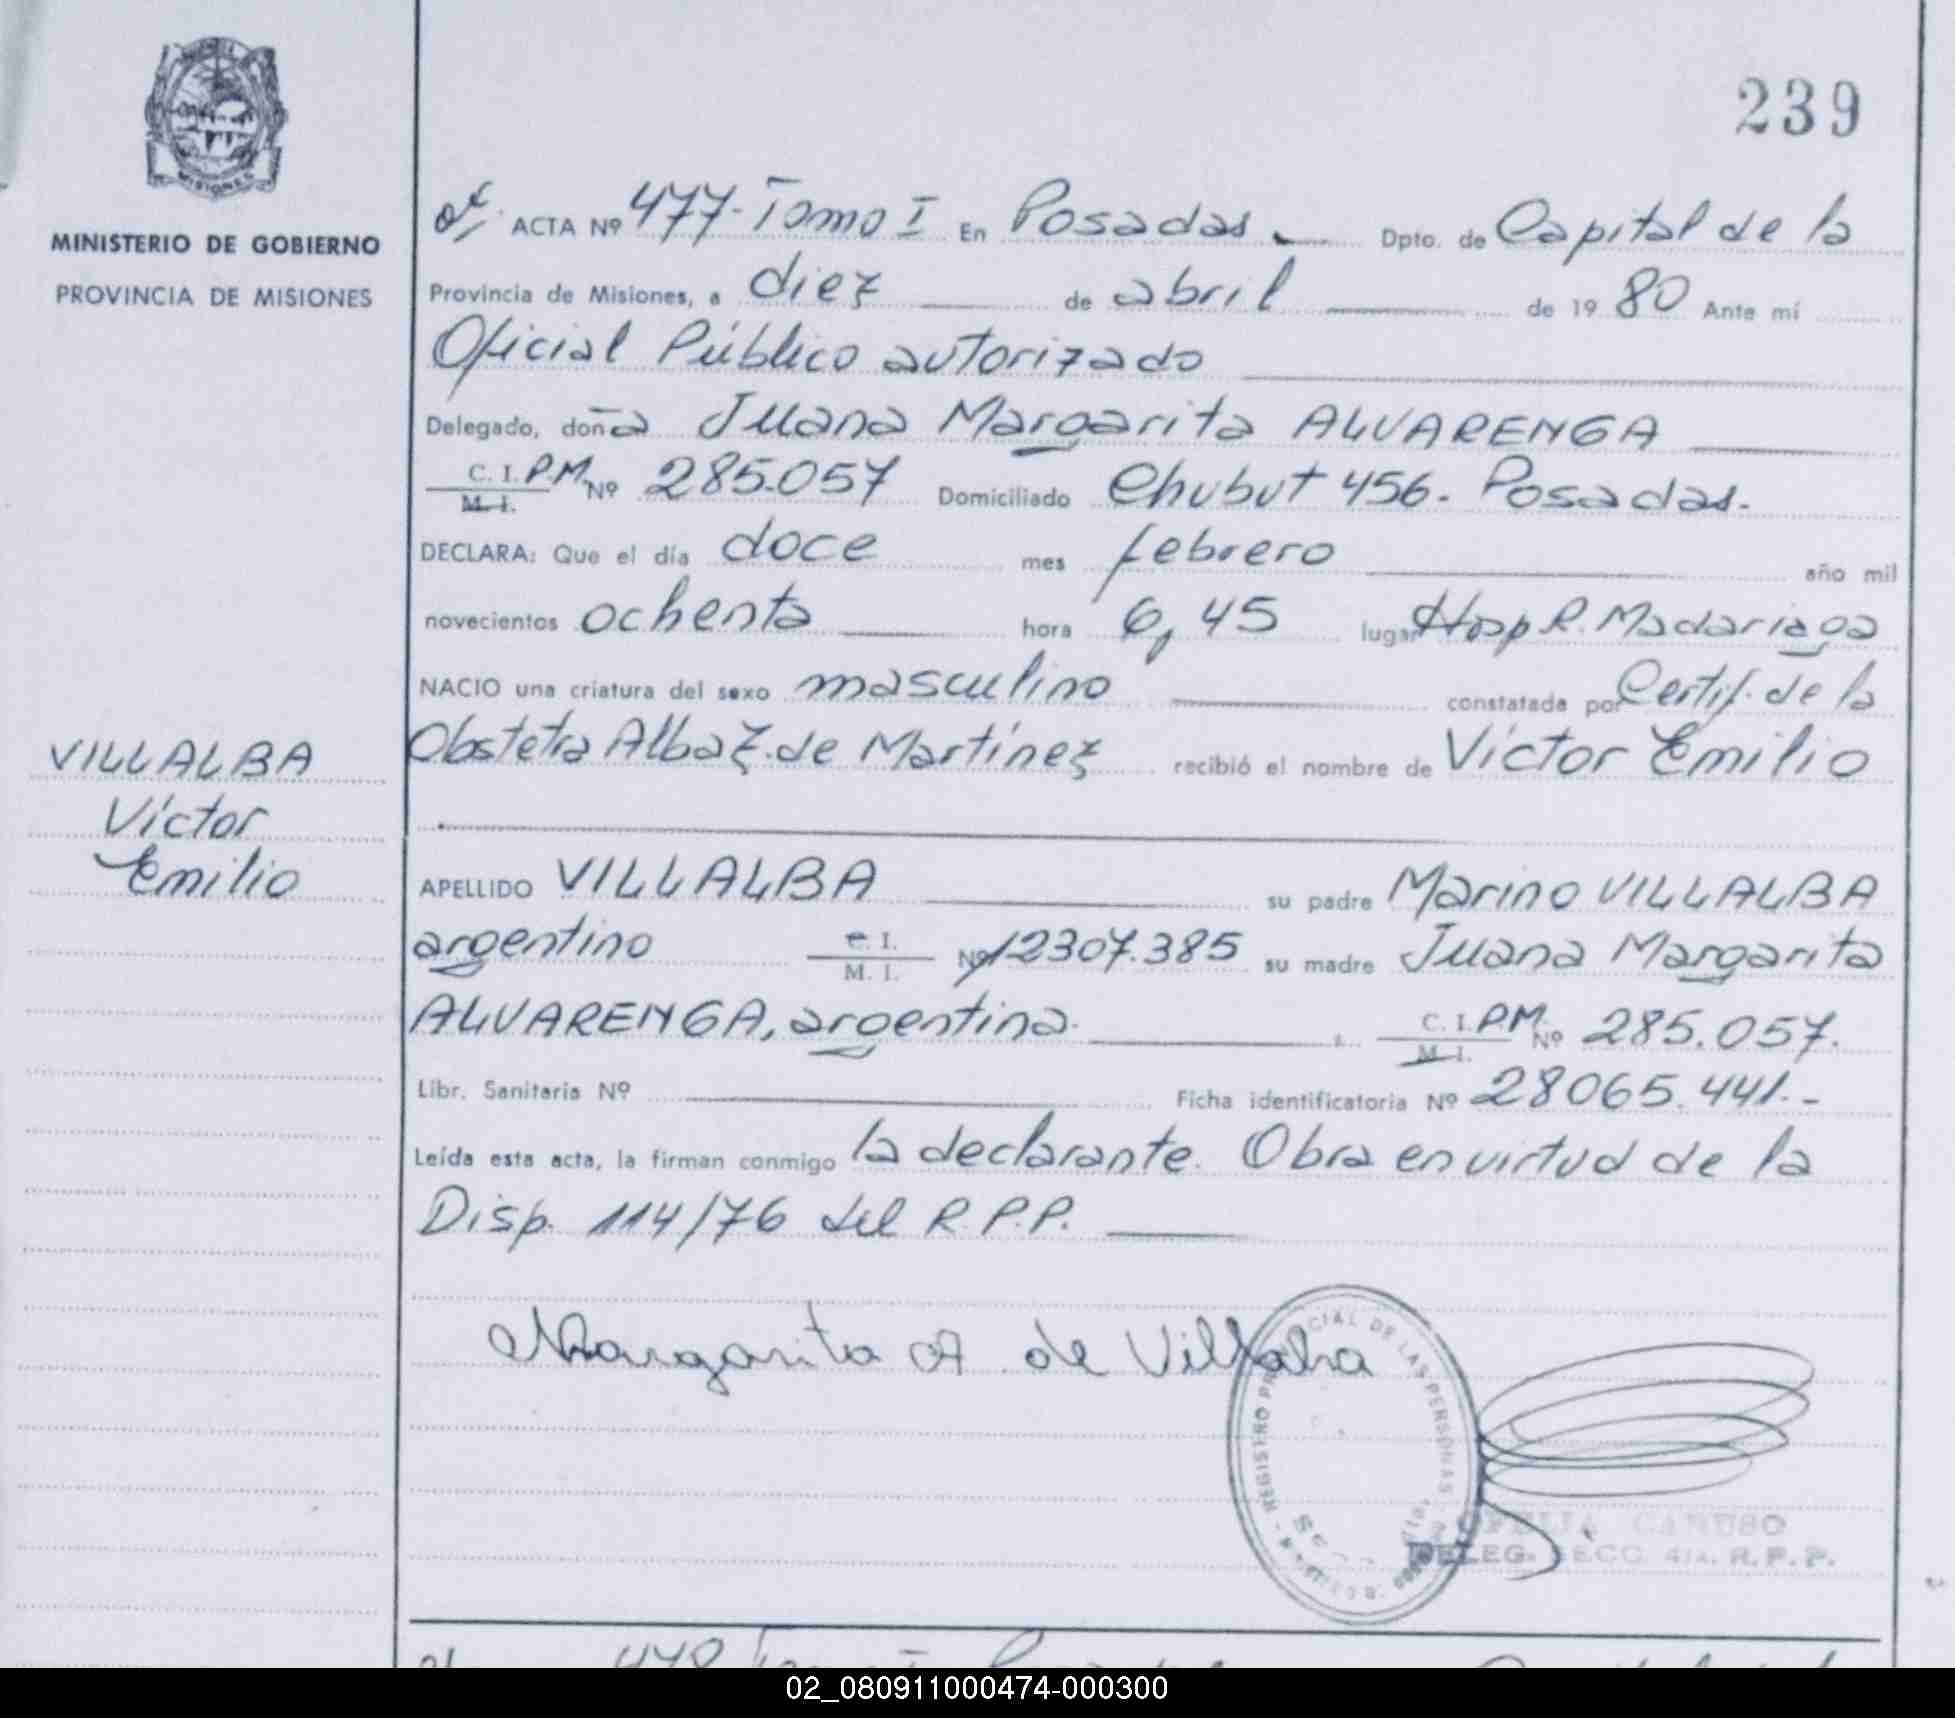 239
MISIONES
MINISTERIO DE GOBIERNO
PROVINCIA DE MISIONES
VILLALBA
Víctor
Emilio
ACTA Nº 477-Tomo I En Posadas. Dpto. de Capital de la
Provincia de Misiones, a diez de abril de 1980 Ante mí
Oficial Público autorizado
Delegado, doña Juana Margarita ALVARENGA
C. I. P.M. Nº 285.057 Domiciliado Chubut 456. Posadas.
M. I.
DECLARA: Que el día doce mes febrero año mil
novecientos ochenta hora 6,45 lugar Hosp R. Madariaga
NACIO una criatura del sexo masculino constatada por Certif. de la
Obstetra Alba Z. de Martínez recibió el nombre de Víctor Emilio
APELLIDO VILLALBA su padre Marino VILLALBA
argentino C. I. M. I. Nº 12307.385 su madre Juana Margarita
ALVARENGA, argentina. C. I. P.M. Nº 285.057.
M. I.
Libr. Sanitaria Nº Ficha identificatoria Nº 28065.441.-
Leída esta acta, la firman conmigo la declarante. Obra en virtud de la
Disp. 114/76 del R.P.P.
Margarita A de Villalba
REGISTRO PROVINCIAL DE LAS PERSONAS
OFELIA CARUSO
DELEG. SECC. 4ta. R. P. P.
02_080911000474-000300